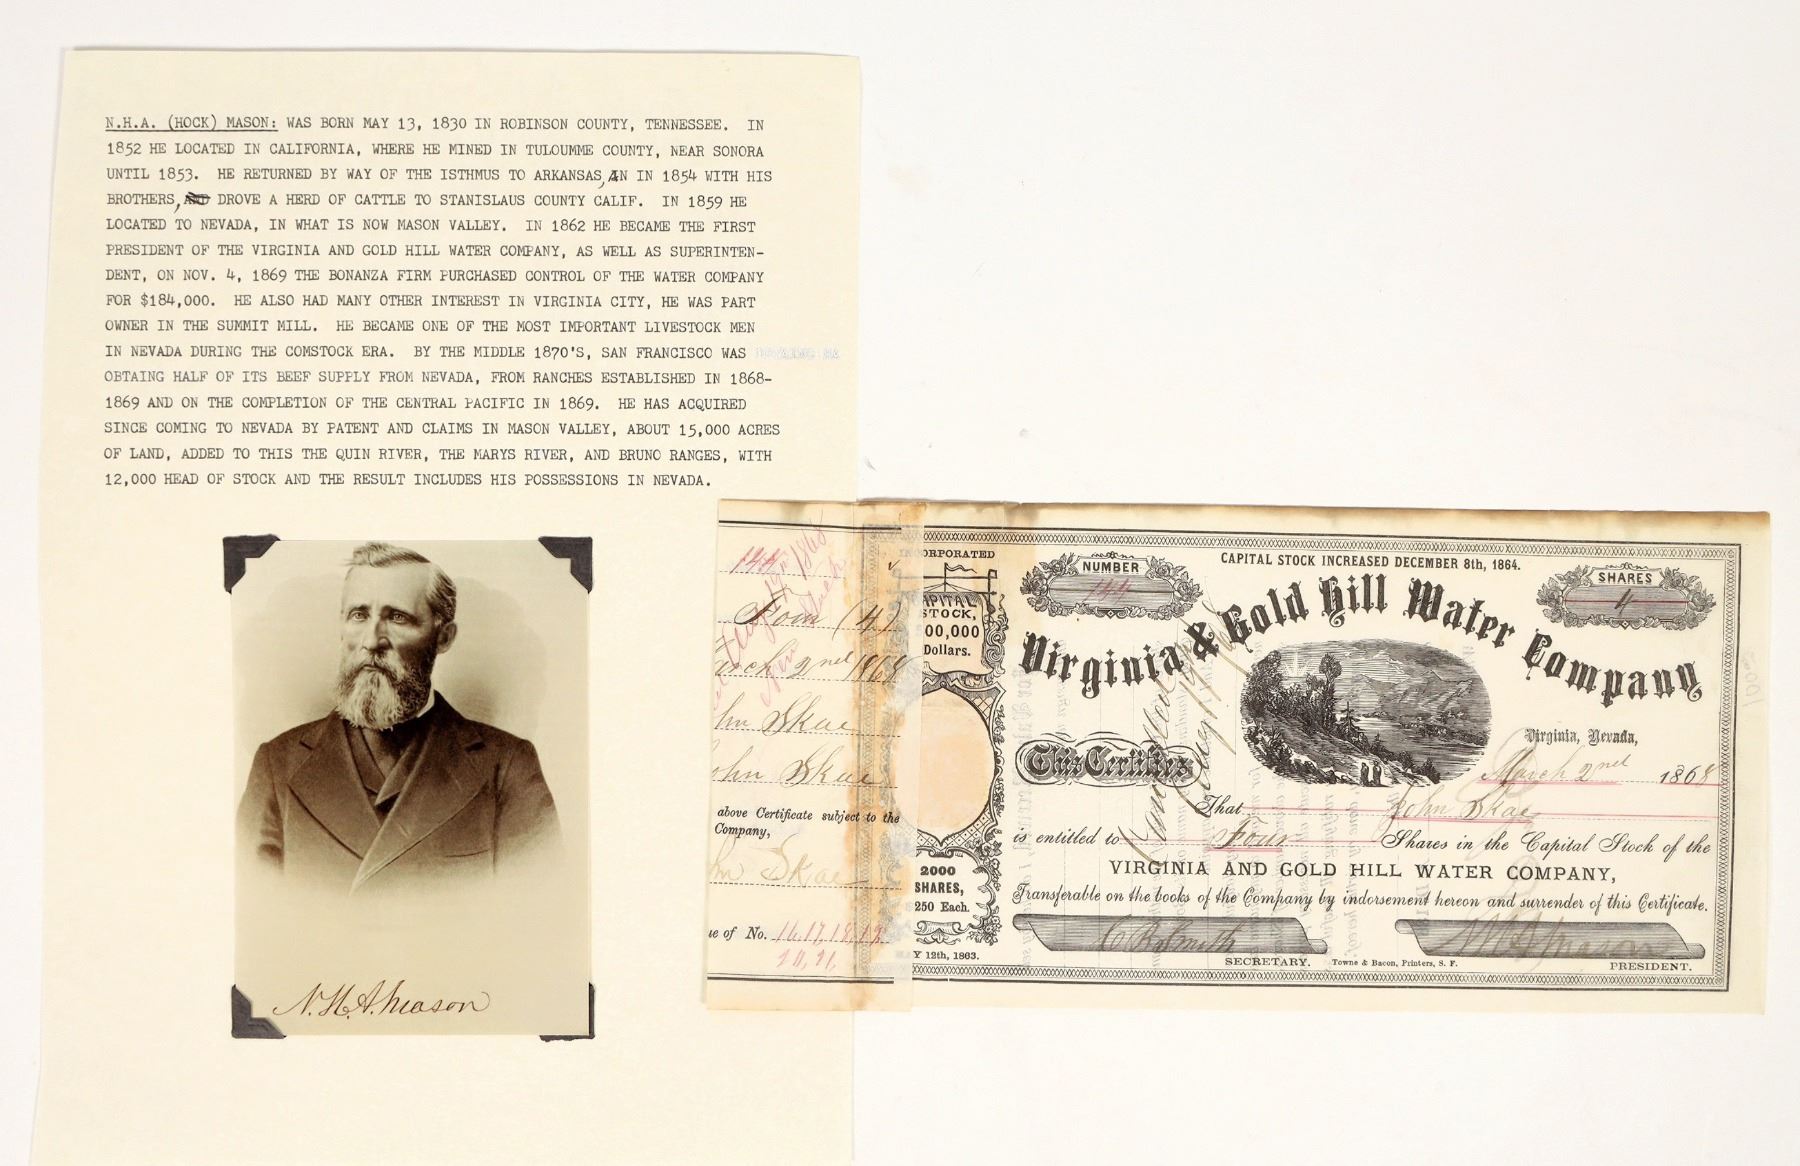 N.H.A. (HOCK) MASON: WAS BORN MAY 13, 1830 IN ROBINSON COUNTY, TENNESSEE. IN
1852 HE LOCATED IN CALIFORNIA, WHERE HE MINED IN TULOUMME COUNTY, NEAR SONORA
UNTIL 1853. HE RETURNED BY WAY OF THE ISTHMUS TO ARKANSAS, AN IN 1854 WITH HIS
BROTHERS, AND DROVE A HERD OF CATTLE TO STANISLAUS COUNTY CALIF. IN 1859 HE
LOCATED TO NEVADA, IN WHAT IS NOW MASON VALLEY. IN 1862 HE BECAME THE FIRST
PRESIDENT OF THE VIRGINIA AND GOLD HILL WATER COMPANY, AS WELL AS SUPERINTEN-
DENT, ON NOV. 4, 1869 THE BONANZA FIRM PURCHASED CONTROL OF THE WATER COMPANY
FOR $184,000. HE ALSO HAD MANY OTHER INTEREST IN VIRGINIA CITY, HE WAS PART
OWNER IN THE SUMMIT MILL. HE BECAME ONE OF THE MOST IMPORTANT LIVESTOCK MEN
IN NEVADA DURING THE COMSTOCK ERA. BY THE MIDDLE 1870'S, SAN FRANCISCO WAS
OBTAING HALF OF ITS BEEF SUPPLY FROM NEVADA, FROM RANCHES ESTABLISHED IN 1868-
1869 AND ON THE COMPLETION OF THE CENTRAL PACIFIC IN 1869. HE HAS ACQUIRED
SINCE COMING TO NEVADA BY PATENT AND CLAIMS IN MASON VALLEY, ABOUT 15,000 ACRES
OF LAND, ADDED TO THIS THE QUIN RIVER, THE MARYS RIVER, AND BRUNO RANGES, WITH
12,000 HEAD OF STOCK AND THE RESULT INCLUDES HIS POSSESSIONS IN NEVADA.
N. H. A. Mason
144
Four (4)
2nd 1868
John Skae
John Skae
above Certificate subject to the
Company,
Skae
of No. 16, 17, 18, 19
20, 21,
ORPORATED
CAPITAL
STOCK,
00,000
Dollars.
2000
SHARES,
250 Each.
12th, 1863.
NUMBER
144
CAPITAL STOCK INCREASED DECEMBER 8th, 1864.
SHARES
4
Virginia & Gold Hill Water Company
Virginia, Nevada,
March 2nd 1868
This Certifies
That John Skae
is entitled to Four Shares in the Capital Stock of the
VIRGINIA AND GOLD HILL WATER COMPANY,
Transferable on the books of the Company by indorsement hereon and surrender of this Certificate.
C R Smith
N H A Mason
SECRETARY. Towne & Bacon, Printers, S. F. PRESIDENT.
Cancelled